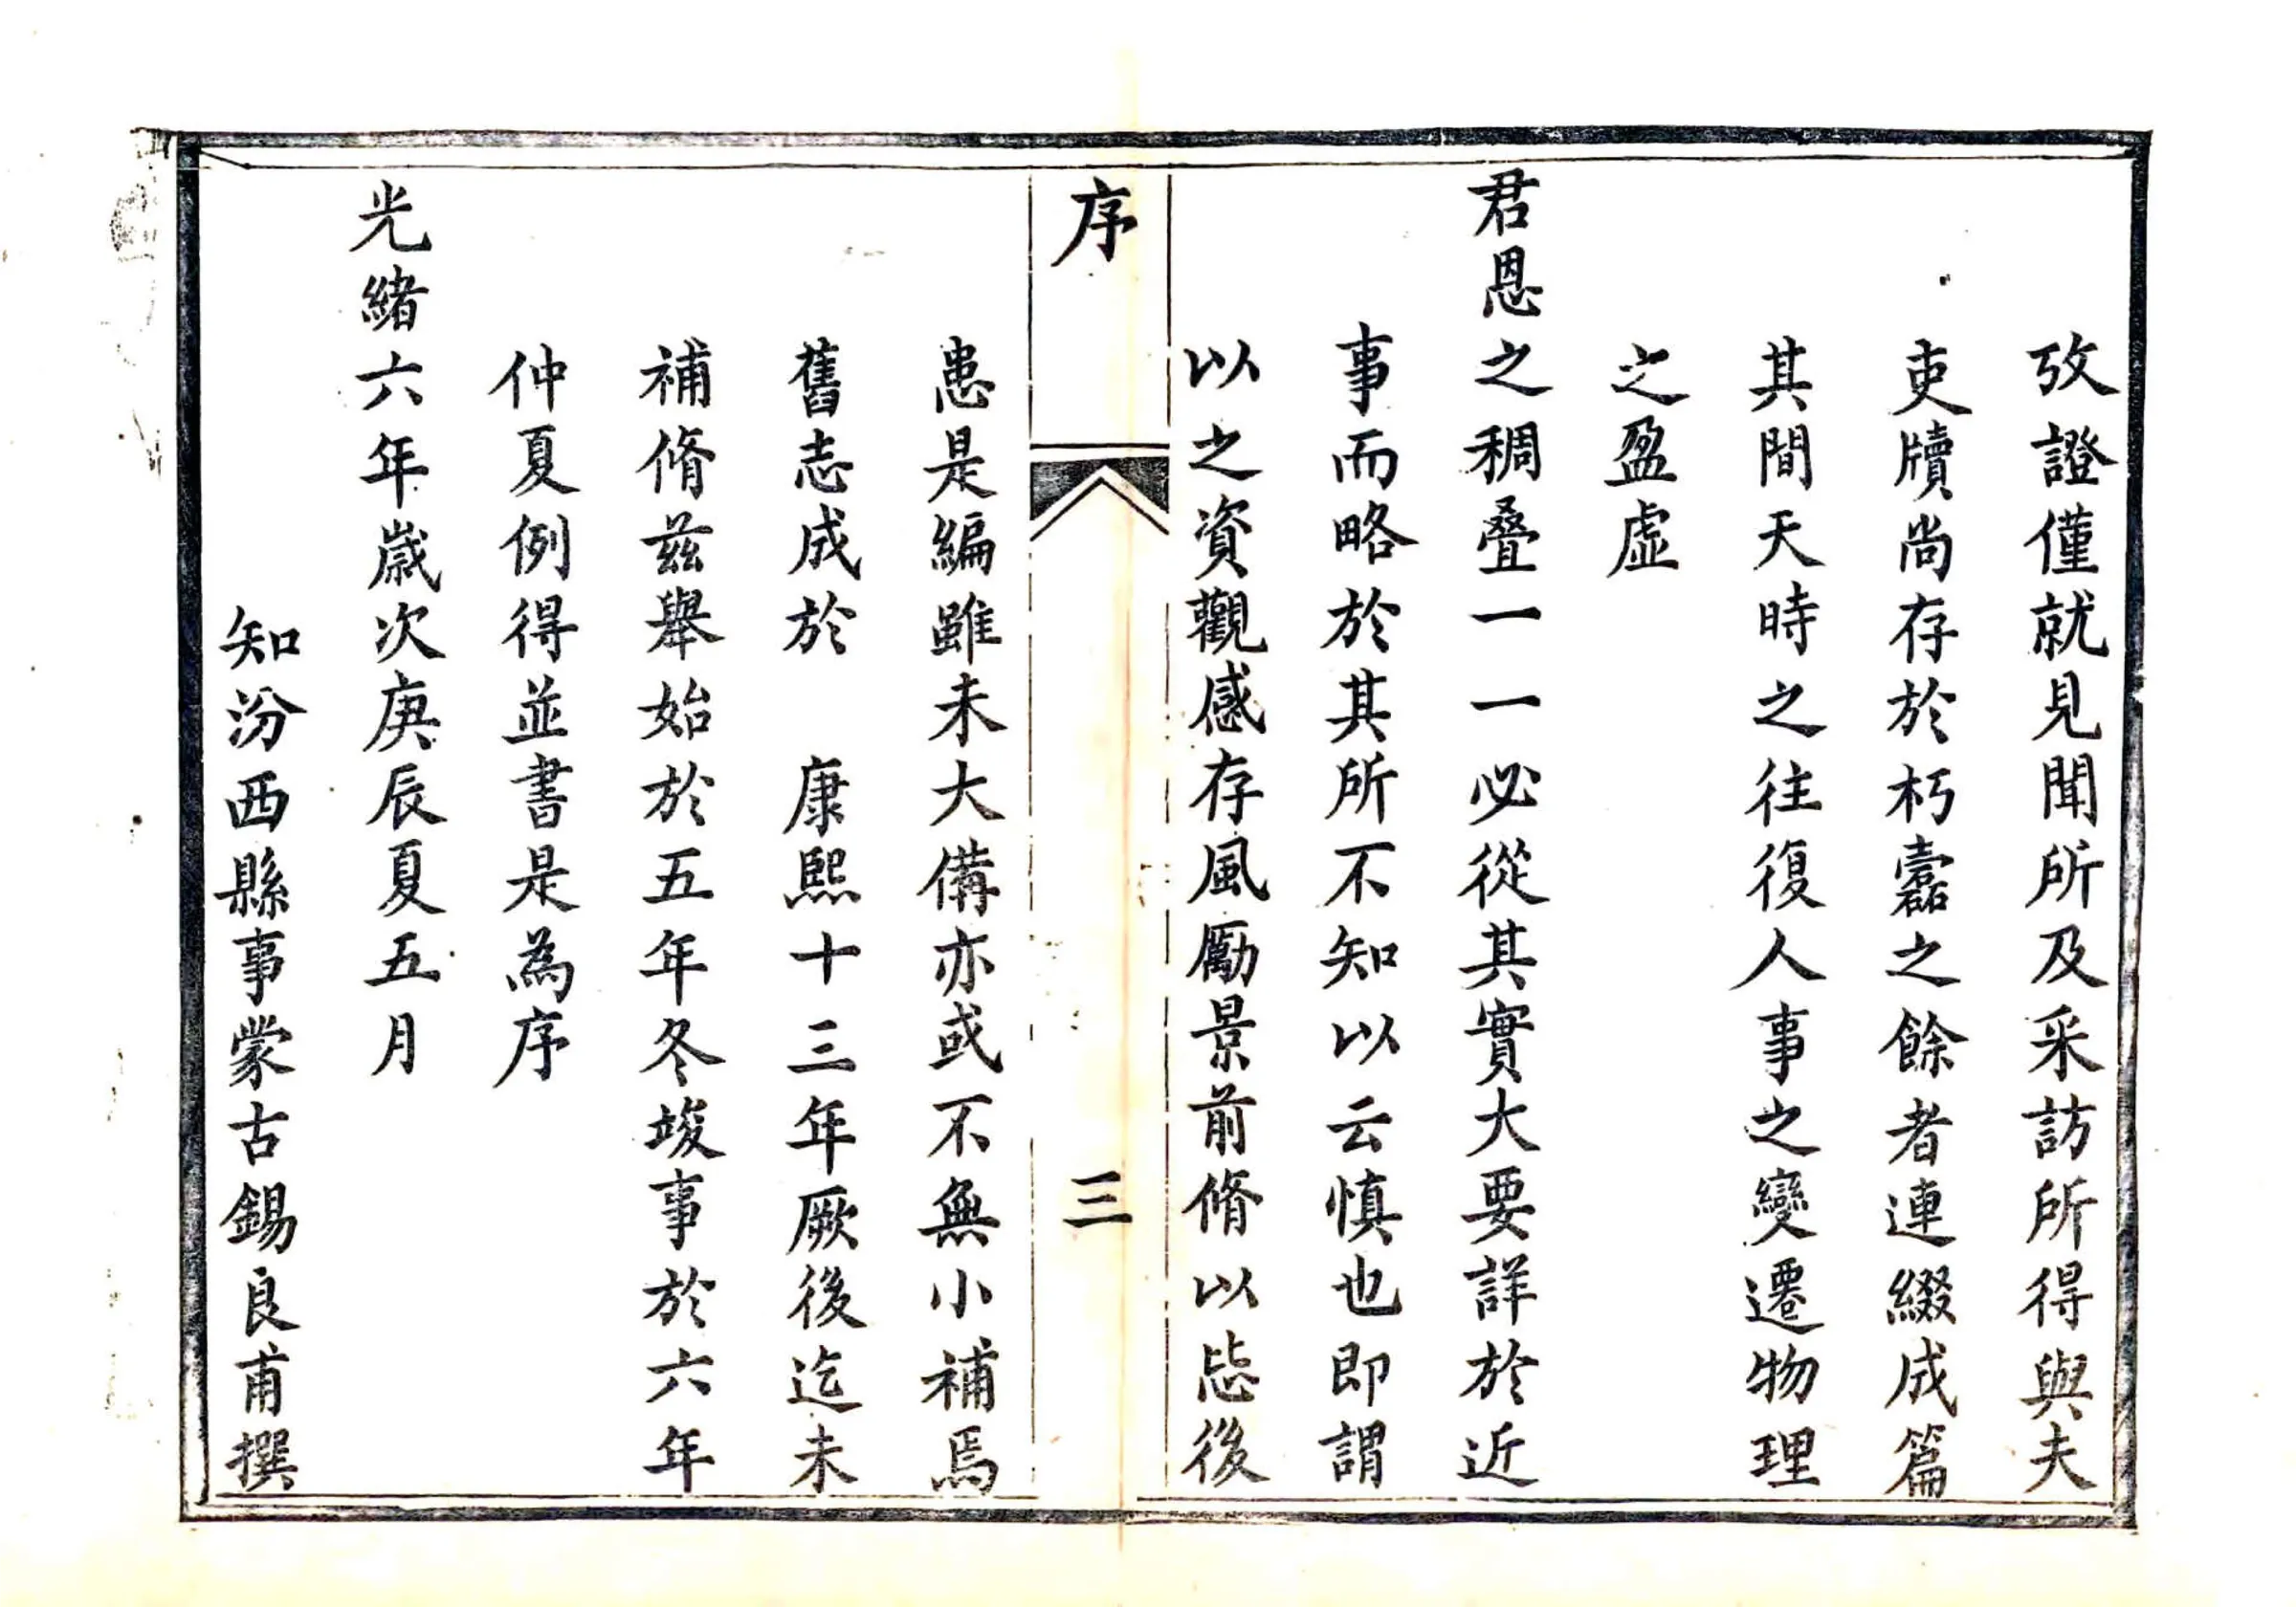 攷證僅就見聞所及采訪所得與夫
吏牘尚存於朽蠹之餘者連綴成篇
其間天時之往復人事之變遷物理
之盈虛
君恩之稠疊一一必從其實大要詳於近
事而略於其所不知以云慎也即謂
以之資觀感存風勵景前脩以毖後
序
三
患是編雖未大備亦或不無小補焉
舊志成於 康熙十三年厥後迄未
補脩兹舉始於五年冬竣事於六年
仲夏例得並書是為序
光緒六年歲次庚辰夏五月
知汾西縣事蒙古錫良甫撰